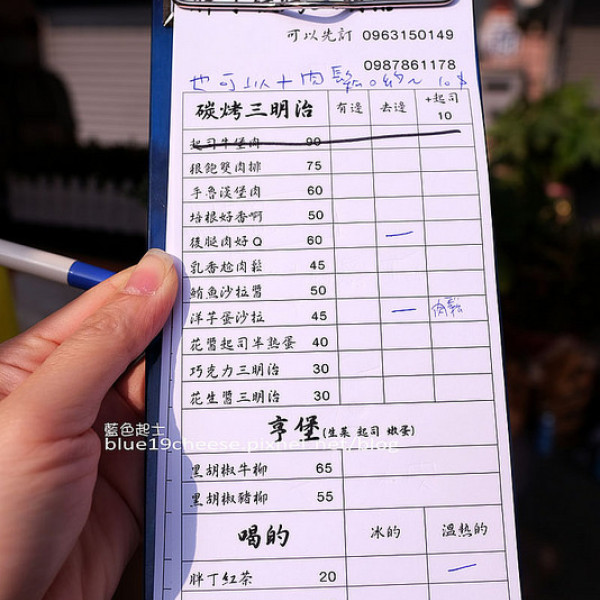 可以先訂 0963150149
0987861178
也可以十肉鬆
碳烤三明治 有邊 去邊 +起司 10
起司牛堡肉 90
很飽雙肉排 75
手魯漢堡肉 60
培根好香啊 50
後腿肉好Q 60 一
乳香起肉鬆 45
鮪魚沙拉醬 50
洋芋蛋沙拉 45 一 肉鬆
花醬起司半熟蛋 40
巧克力三明治 30
花生醬三明治 30
亨堡(生菜 起司 嫩蛋)
黑胡椒牛柳 65
黑胡椒豬柳 55
喝的 冰的 溫熱的
胖丁紅茶 20 一
藍色起士
blue19cheese.pixnet.net/blog